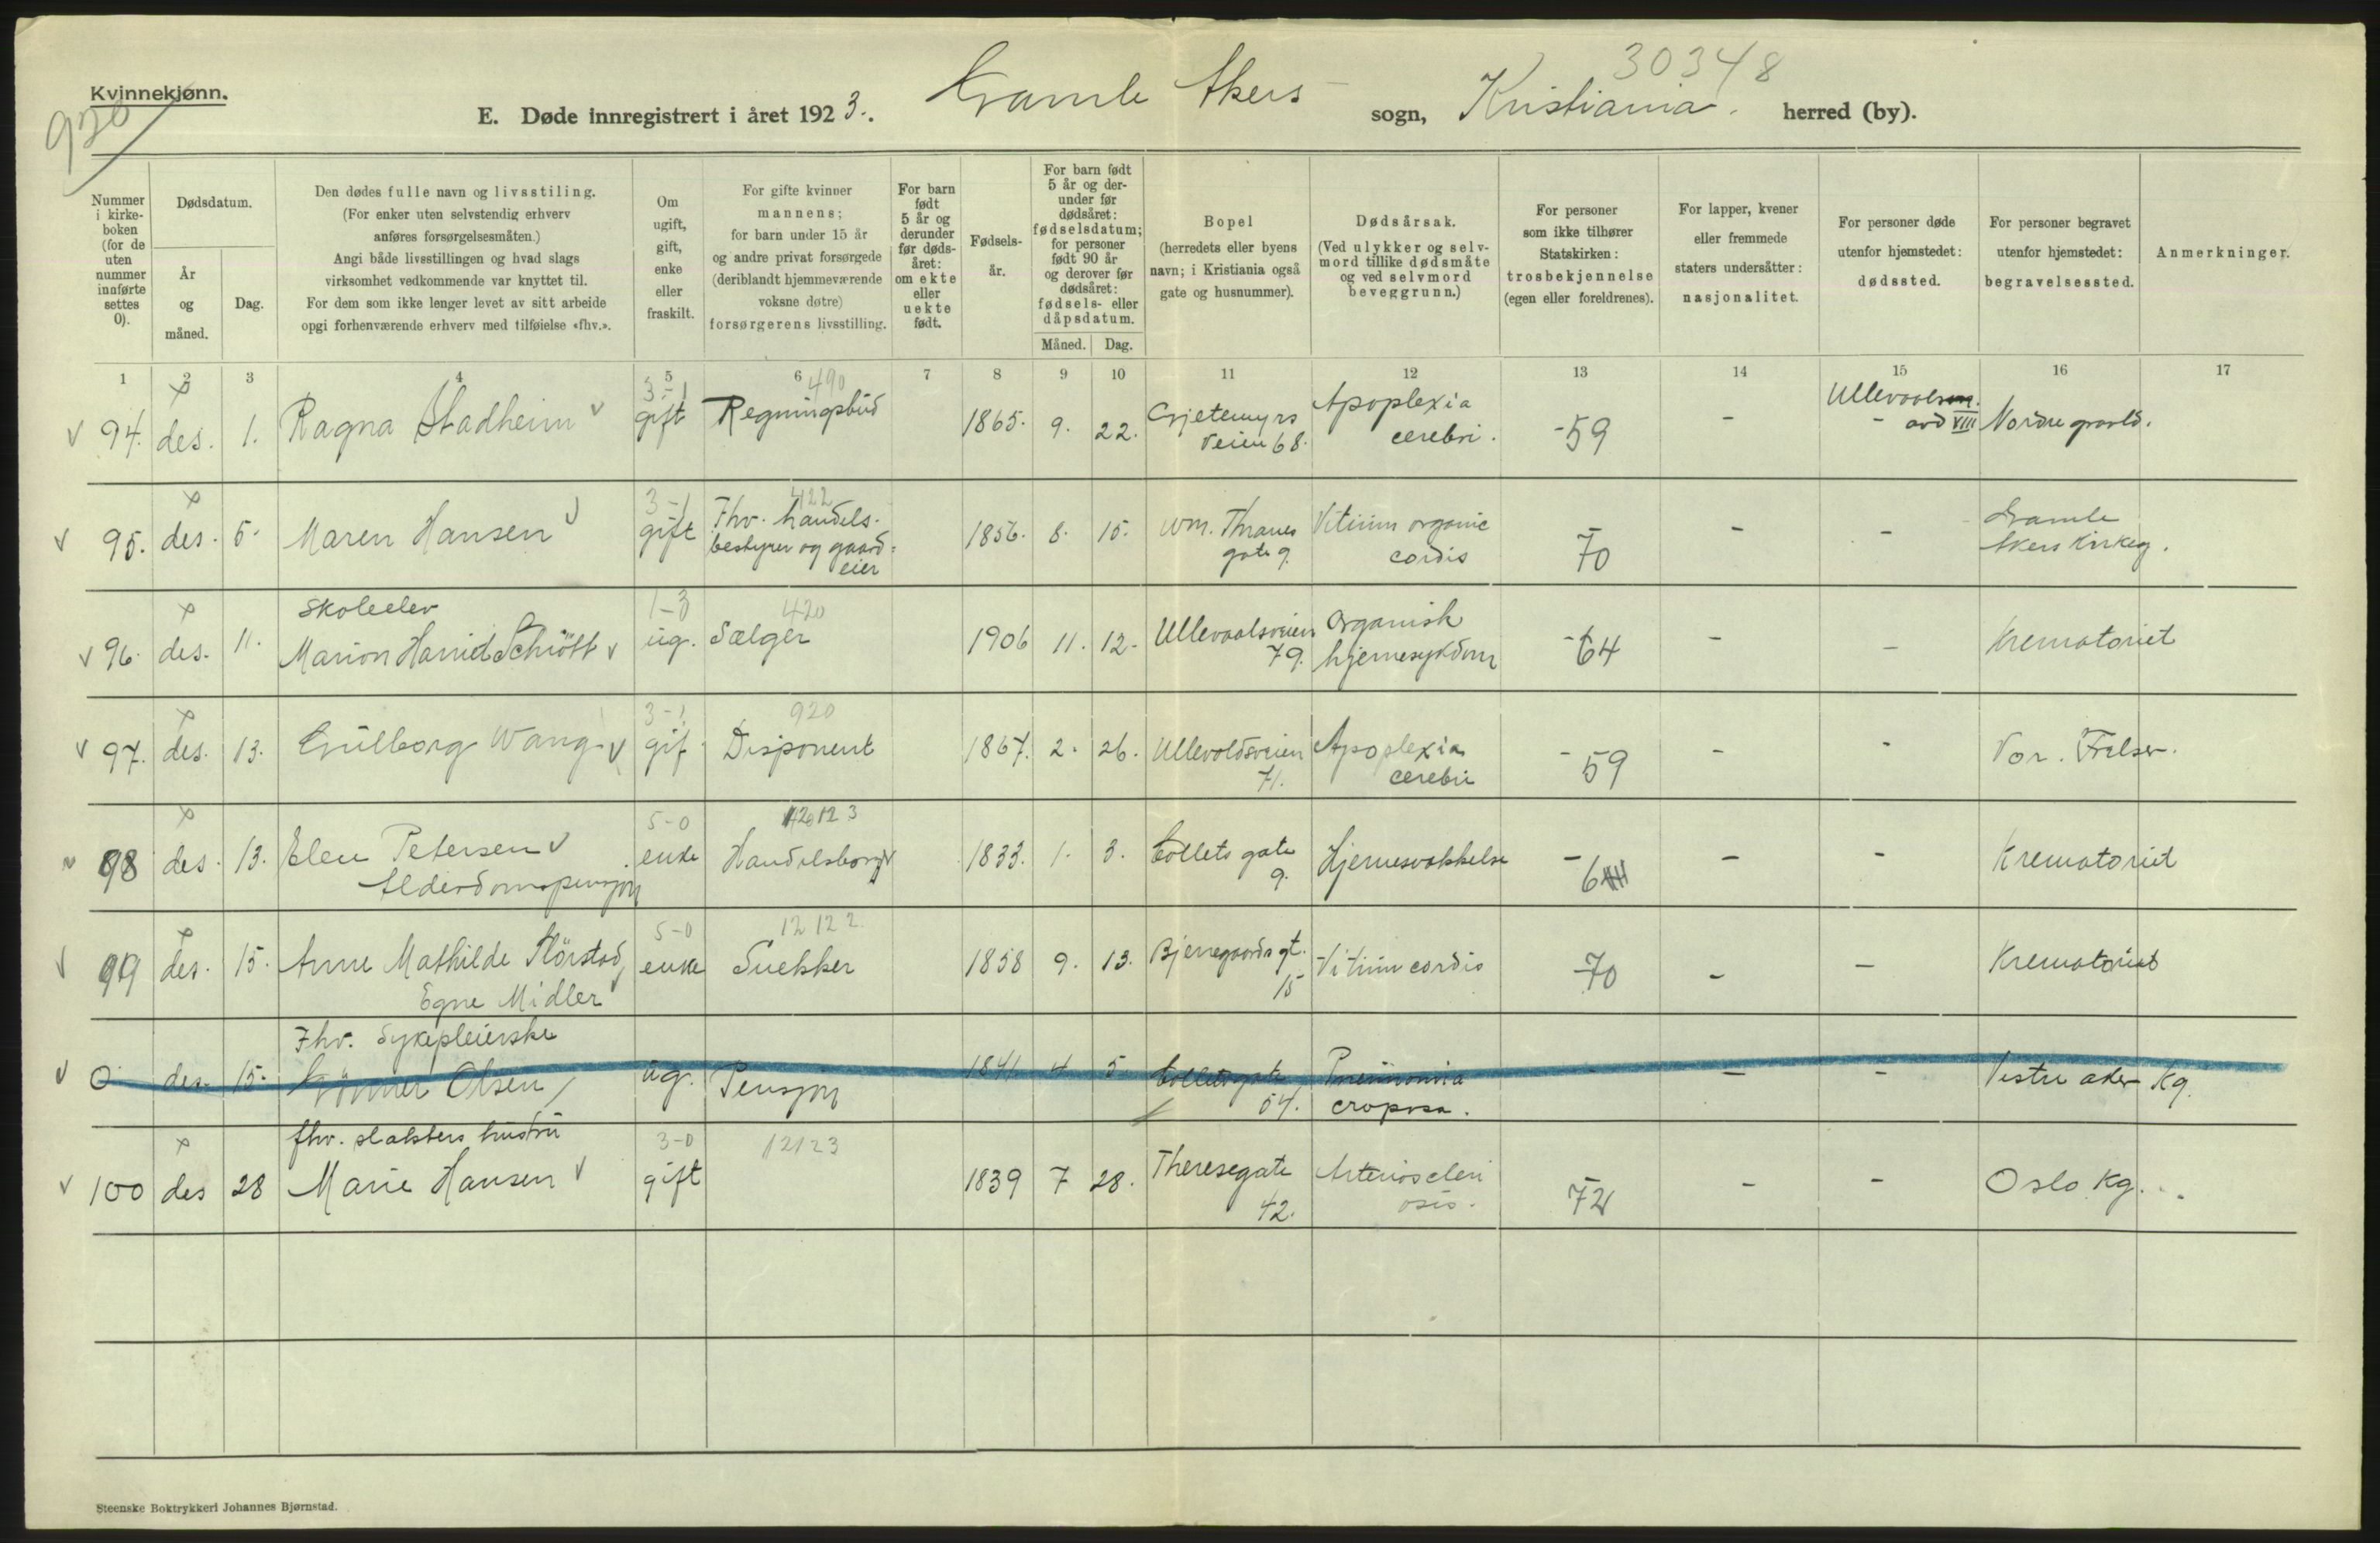 Kvinnekjønn.
920
30348
E. Døde innregistrert i året 1923. Gamle Akers sogn, Kristiania. herred (by).
Nummer i kirkeboken (for de uten nummer innførte settes 0).
Dødsdatum.
År og måned.
Dag.
Den dødes fulle navn og livsstiling.
(For enker uten selvstendig erhverv
anføres forsørgelsesmåten.)
Angi både livsstillingen og hvad slags
virksomhet vedkommende var knyttet til.
For dem som ikke lenger levet av sitt arbeide
opgi forhenværende erhverv med tilføielse «fhv.».
Om ugift, gift, enke eller fraskilt.
For gifte kvinner
mannens;
for barn under 15 år
og andre privat forsørgede
(deriblandt hjemmeværende
voksne døtre)
forsørgerens livsstilling.
For barn født 5 år og derunder før dødsåret: om ekte eller uekte født.
Fødselsår.
For barn født 5 år og derunder før dødsåret: fødselsdatum; for personer født 90 år og derover før dødsåret: fødsels- eller dåpsdatum.
Måned.
Dag.
Bopel
(herredets eller byens
navn; i Kristiania også
gate og husnummer).
Dødsårsak.
(Ved ulykker og selvmord tillike dødsmåte
og ved selvmord
beveggrunn.)
For personer
som ikke tilhører
Statskirken:
trosbekjennelse
(egen eller foreldrenes).
For lapper, kvener
eller fremmede
staters undersåtter:
nasjonalitet.
For personer døde
utenfor hjemstedet:
dødssted.
For personer begravet
utenfor hjemstedet:
begravelsessted.
Anmerkninger.
1 2 3 4 5 6 7 8 9 10 11 12 13 14 15 16 17
3-1 490
v 94. des. 1. Ragna Stadheim v gift Regningsbud 1865. 9. 22. Gjetemyrs veien 68. Apoplexia cerebri. -59 - Ullevaals - avd VIII Nordre gravld.
3-1 422
v 95. des. 5. Maren Hansen v gift Fhv. handelsbestyrer og gaardeier 1856. 8. 15. Wm. Thranes gate 9. Vitium organic cordis 70 - - Gamle Akers Kirkeg.
1-3 420
v 96. des. 11. Skoleelev Marion Harriet Schiött v ug. Sælger 1906 11. 12. Ullevaalsveien 79. Organisk hjernesykdom 64 - - Krematoriet
3-1 920
v 97. des. 13. Gulborg Wang v gif. Disponent 1867. 2. 26. Ullevoldsveien 71. Apoplexia cerebri - 59 - - Vor. Frelser.
5-0 12 12 3
98 des. 13. Elen Petersen v Alderdomspensjon enke Handelsborger 1833. 1. 3. Collets gate 9. Hjernesvækkelse - 6 - - Krematoriet
5-0 12 12 2
v 99 des. 15. Anne Mathilde Egne Midler enke Snekker 1858 9. 13. Bjerregaards gt. 15 Vitium cordis 70 - - Krematoriet
v 0 des. 15. Fhv. Sykepleierske Olsen ug. Pensjon 1841 4 5 Collettsgate 54. Pneumonia croposa. - - Vestre aker Kg.
3-0 12123
v 100 des 28 fhv. slakters hustru Marie Hansen v gift 1839 7 28. Theresegate 42. Arterioscleriosis. 72 - - Oslo Kg.
Steenske Boktrykkeri Johannes Bjørnstad.